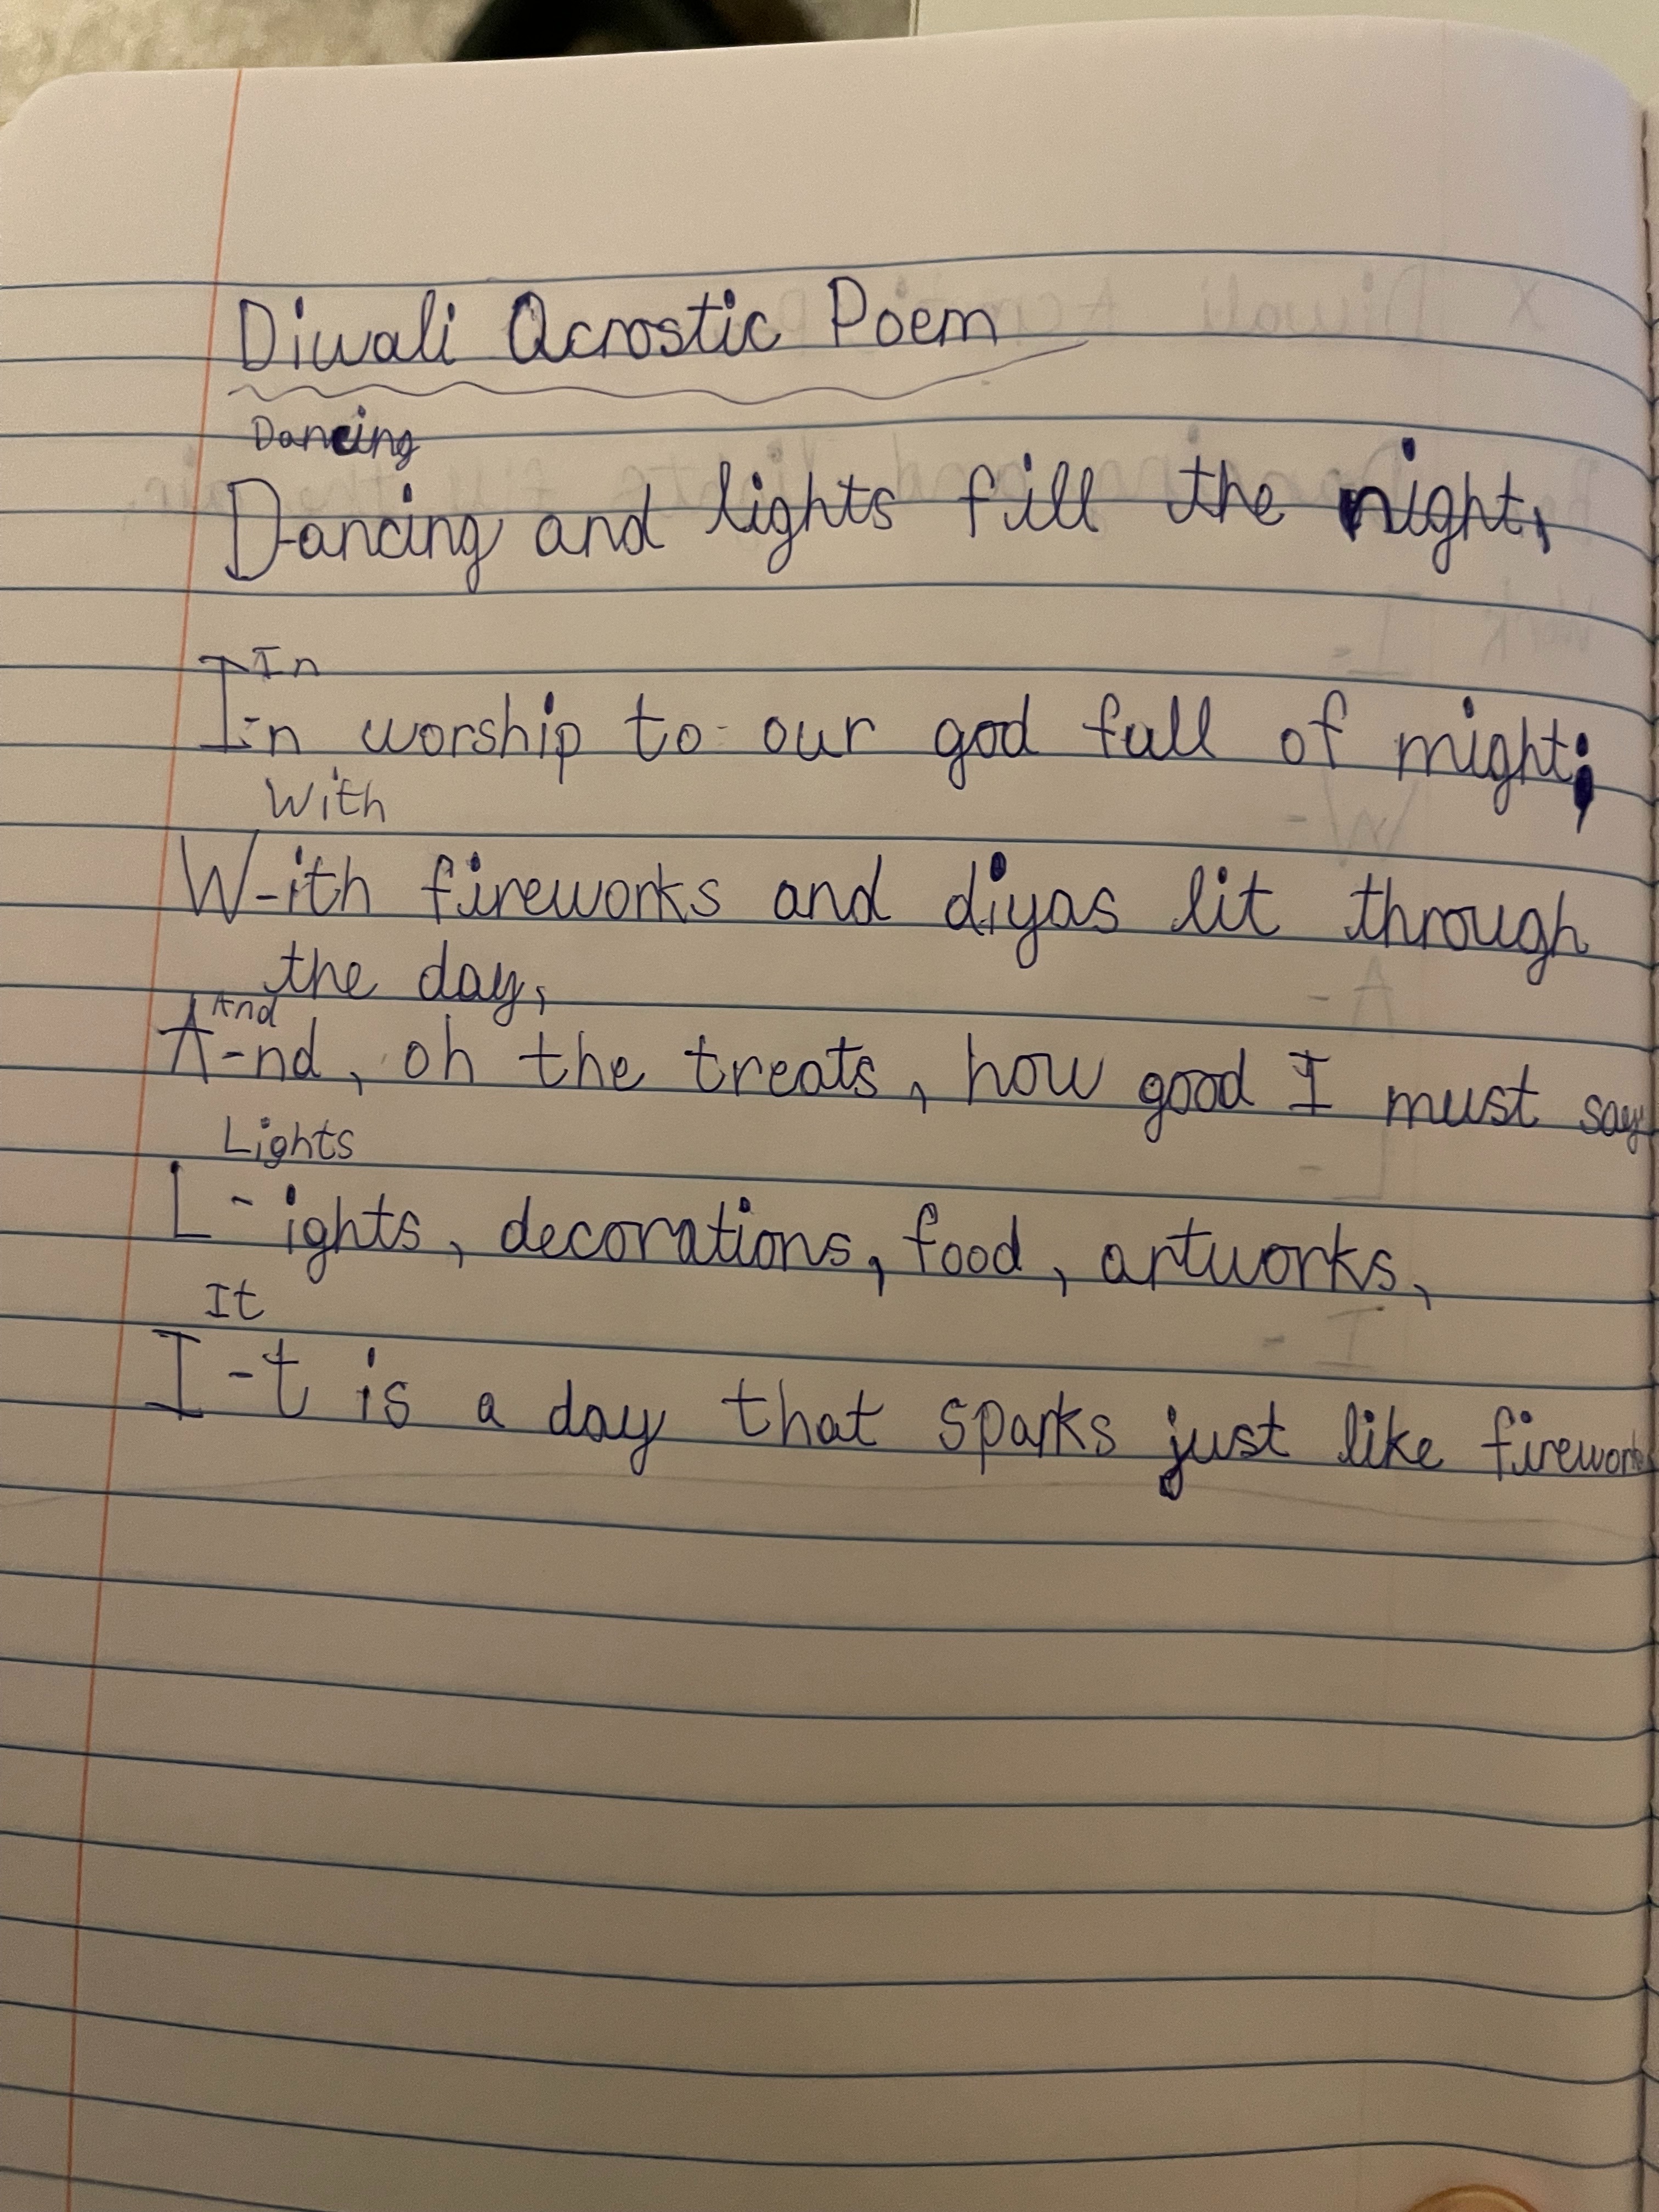 Diwali Acrostic Poem
Dancing
D-ancing and lights fill the night,
In
I-n worship to our god full of might;
With
W-ith fireworks and diyas lit through
the day,
And
A-nd, oh the treats, how good I must say
Lights
L-ights, decorations, food, artworks,
It
I-t is a day that sparks just like